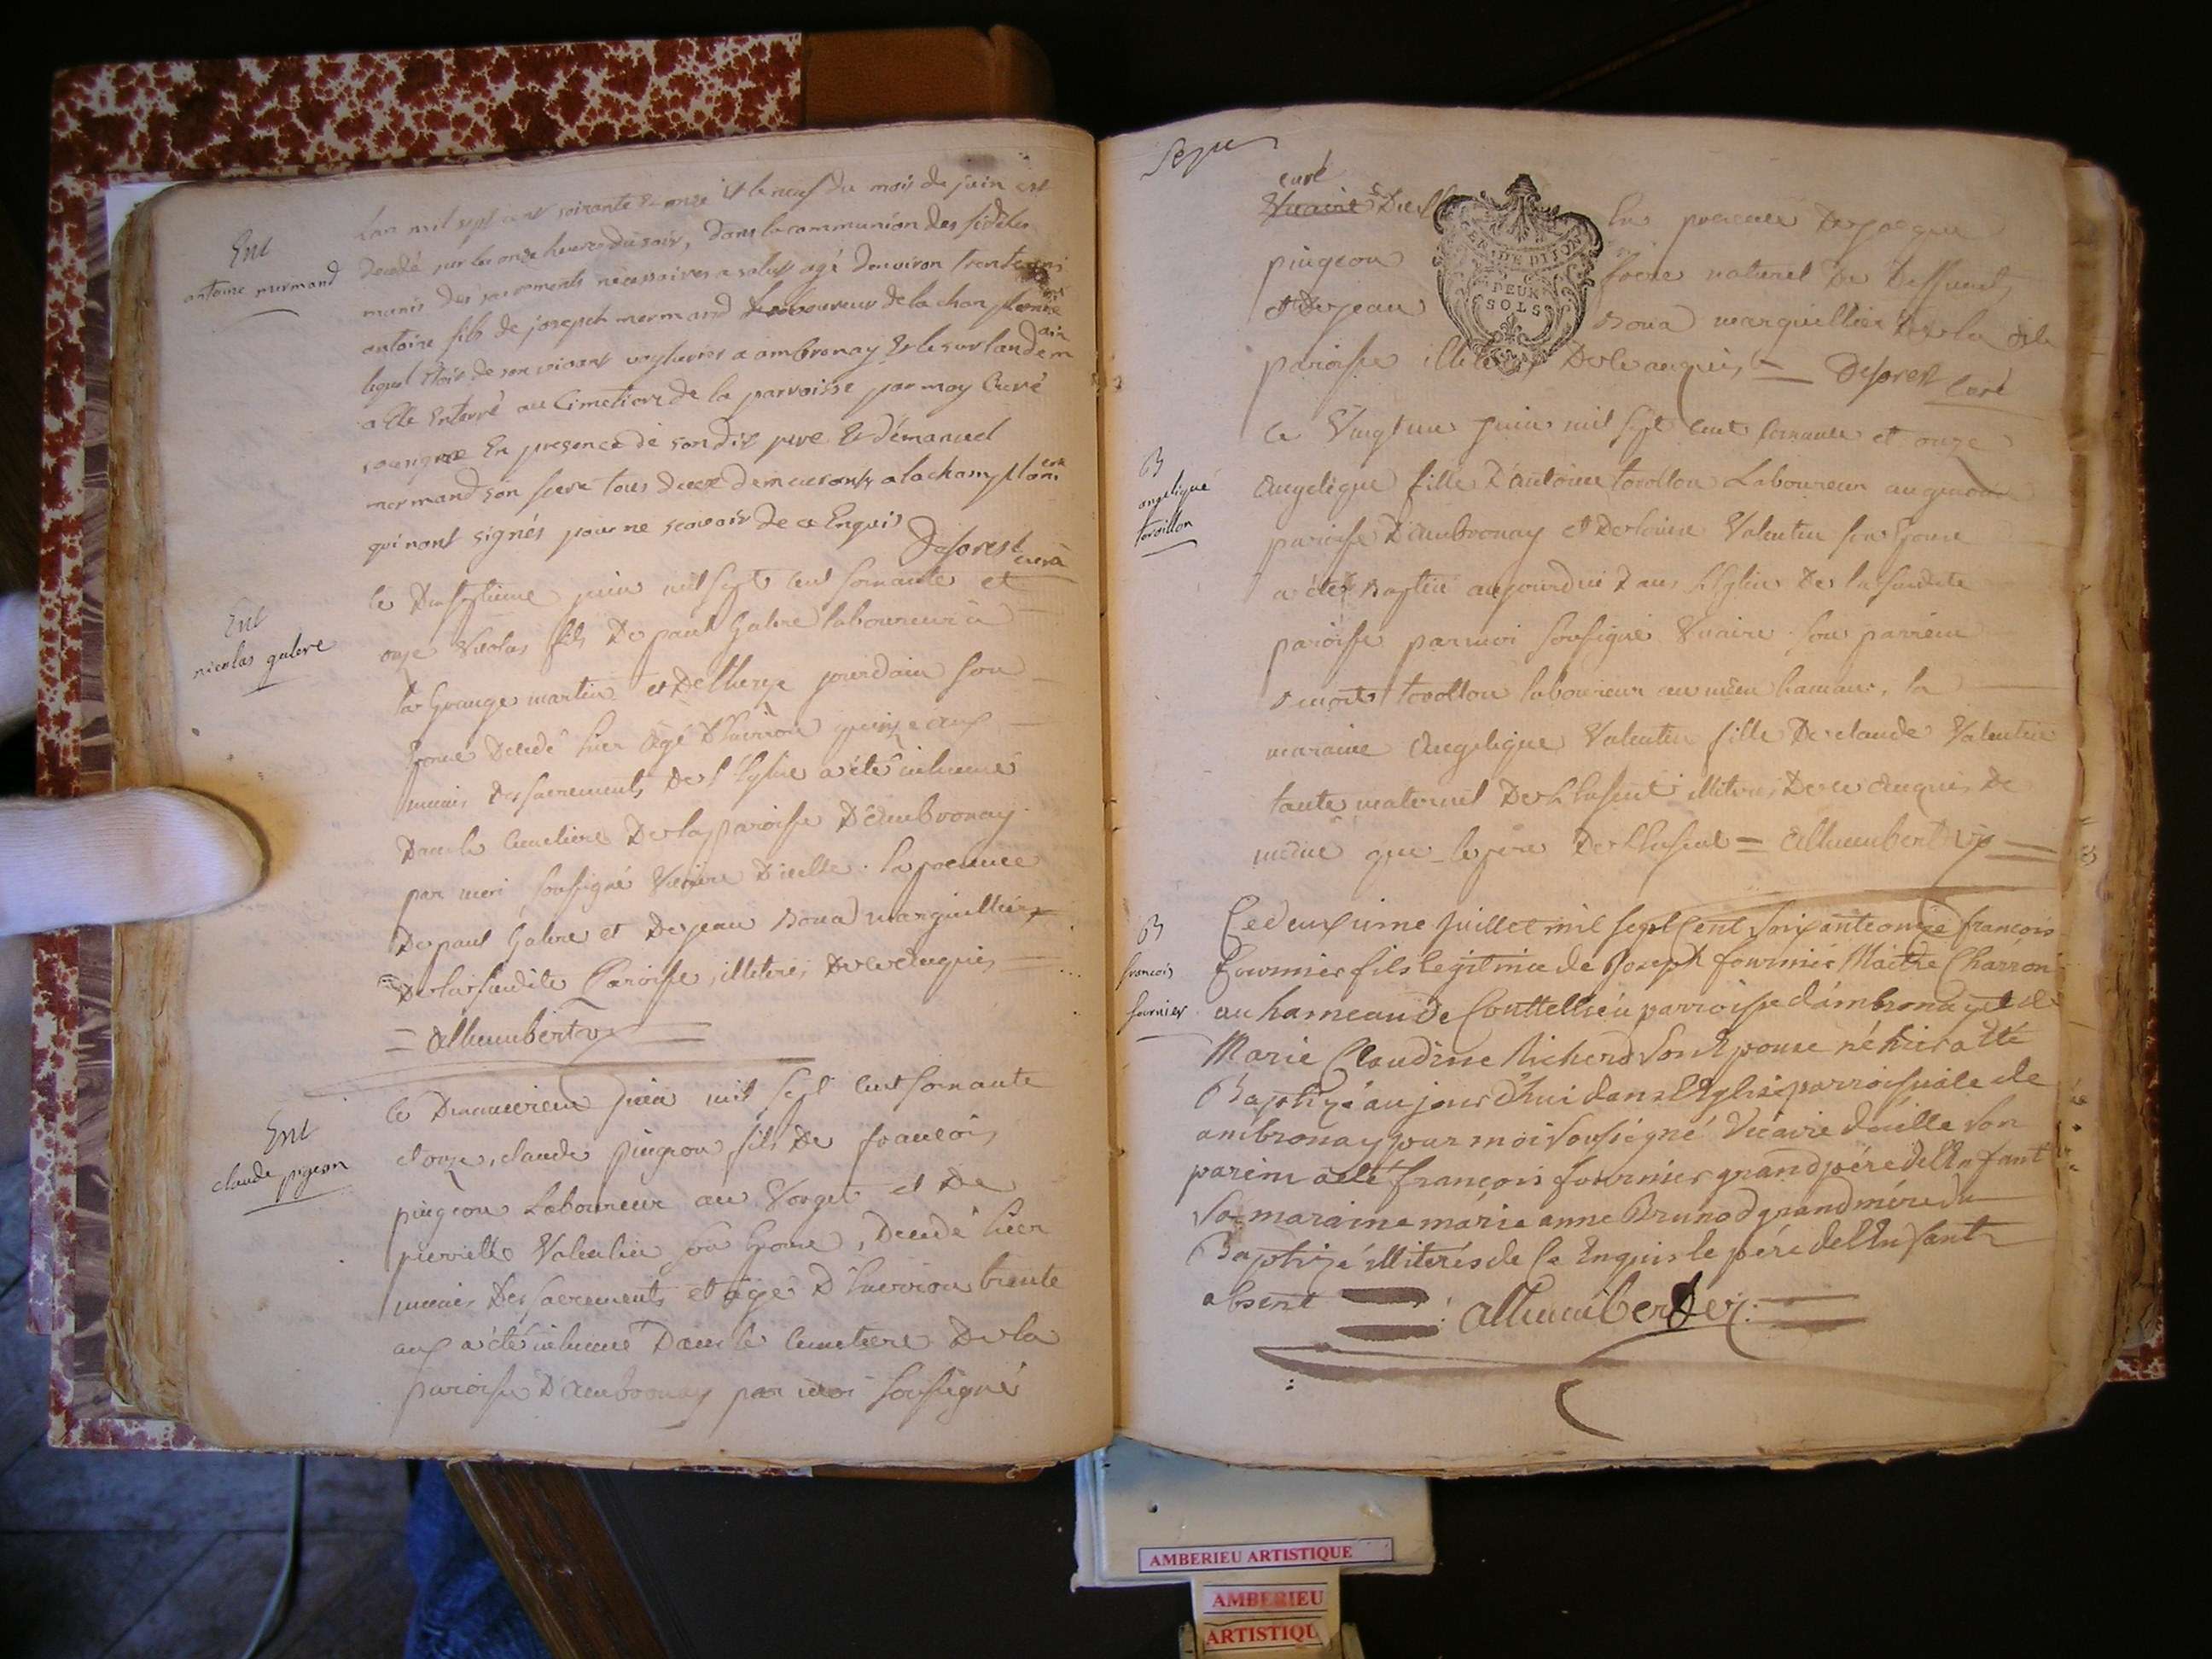 Ent
antoine mermand
Lan mil sept cent soixante & onze et le neuf du mois de juin est
decedé sur les onze heures du soir, dans la communion des fidèles
munis des sacrements necessaires a salut agé denviron trente ans
antoine fils de joseph mermand laboureur de la champlonne
lequel etois de son vivant a ambronay & le surlandemain
a été Enterré au Cimetiere de la parroisse par moy Curé
sousigné En presence de son dit pere & démanuel
mermand son frere tous deux demeurants a la champlonne
qui nont signés pour ne scavoir de ce Enquis
Deforest curé
Ent
nicolas galere
le Dixseptieme juin mil sept cent soixante et
onze Nicolas fils De paul Galere laboureur à
la Grange martin et De therese jourdain son
Epouse Decedé hier âgé D'Environ quinze ans
munis Des sacrements De l'Eglise a été inhumé
Dans le Cimetiere De la paroisse D'Ambronay
par moi soussigné Vicaire D'icelle. la presence
De paul Galere et De jean Bona marguillier
De la susdite Paroisse, illiterés De ce Enquis
= Alhumbert v =
Ent
claude pigeon
le Dixneuvieme juin mil sept cent soixante
et onze, claude pingeon fils De francois
pingeon Laboureur au Vorget et De
pierrette Valentin sa Epouse, Decedé hier
munis Des sacrements et âgé D'Environ trente
ans a été inhumé Dans le Cimetiere De la
paroisse D'Ambronay par moi soussigné
curé
Vicaire D'icelle En presence De jacque
pingeon frere naturel Du Deffunt
et De jean Bona marguillier De la dite
paroisse illiterés De ce enquis = Deforest
Curé
GEN DE DIJON
DEUX
SOLS
B
angelique
torollon
Ce Vingt un juin mil sept cent soixante et onze
Angelique fille D'antoine torollon Laboureur au
paroisse D'ambronay et De Valentin son Epouse
a été Baptisé aujourdui Dans L'Eglise De la susdite
paroisse par moi soussigné Vicaire. son parrein
Benoit torollon laboureur au même hameau, la
maraine Angelique Valentin fille De claude Valentin
tante maternel De L'Enfant illiterés De ce Enquis De
même que le pere De L'Enfant = Alhumbert v
B
francois
fournier
Ce deuxième Juillet mil sept Cent Soixante onze françois
fournier fils legitime de Joseph fournier Maitre Charron
au hameau de Couttellieu parroisse d'ambronay et de
Marie Claudine Richerd Son Epouse né hier a été
Baptizé aujourd'hui dans L'Eglise parroissiale de
ambronay par moi Soussigné Vicaire d'icelle Son
parein a eté françois fournier grand pére de l'Enfant
Sa maraine marie anne Brunod grand mére du
Baptizé illiterés de Ce Enquis le pére de l'Enfant
absent : Alhumbert v
AMBERIEU ARTISTIQUE
AMBERIEU
ARTISTIQU